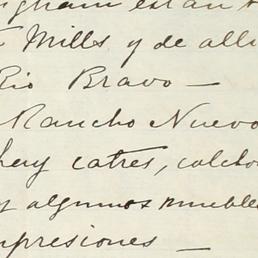 están
Mills y de alli
Rio Bravo —
Rancho Nuevo
hay catres, colcho
y algunos mueble
mpresiones —